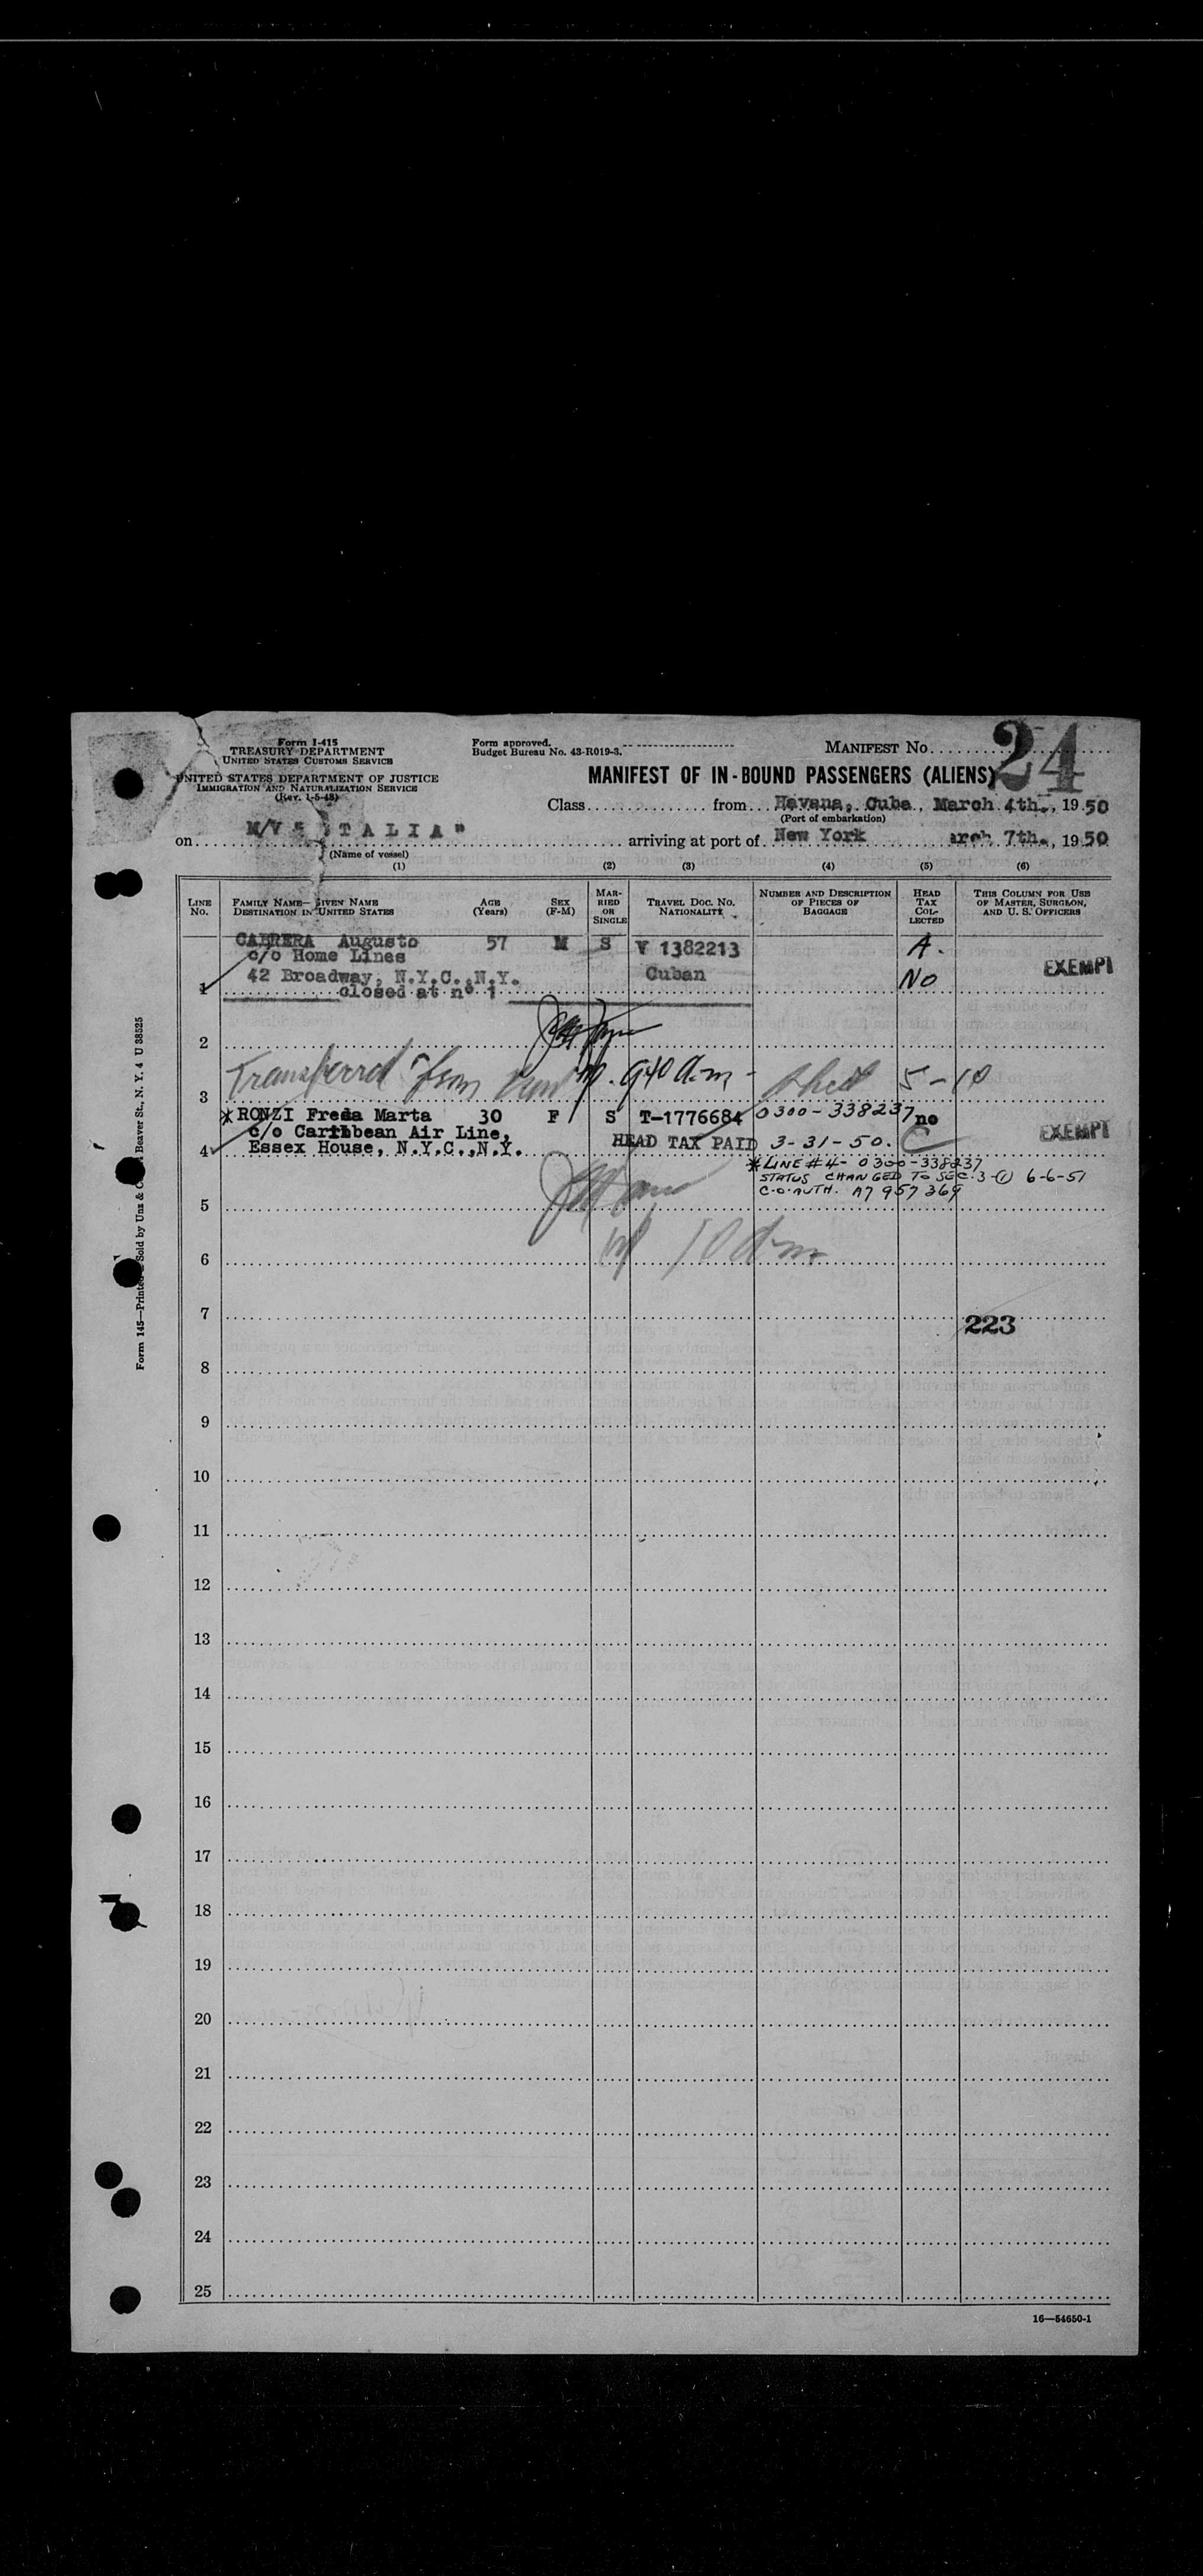 Form I-415
TREASURY DEPARTMENT
UNITED STATES CUSTOMS SERVICE
UNITED STATES DEPARTMENT OF JUSTICE
IMMIGRATION AND NATURALIZATION SERVICE
(Rev. 1-5-48)
Form approved.
Budget Bureau No. 43-R019-3.
MANIFEST No. 24
MANIFEST OF IN-BOUND PASSENGERS (ALIENS)
Class from Havana, Cuba, March 4th., 1950
(Port of embarkation)
on M/V " TALIA" arriving at port of New York arch 7th., 1950
(Name of vessel)
(1) (2) (3) (4) (5) (6)
LINE No. FAMILY NAME—GIVEN NAME DESTINATION IN UNITED STATES AGE (Years) SEX (F-M) MARRIED OR SINGLE TRAVEL DOC. NO. NATIONALITY NUMBER AND DESCRIPTION OF PIECES OF BAGGAGE HEAD TAX COLLECTED THIS COLUMN FOR USE OF MASTER, SURGEON, AND U. S. OFFICERS
CABRERA Augusto 57 M S V 1382213 A.
c/o Home Lines
42 Broadway, N.Y.C.,N.Y. Cuban No EXEMPT
1 closed at nº 1
2
Transferred from 9:40 a.m - sheet 5-10
3
*RONZI Freda Marta 30 F S T-1776684 0300-338237 no
c/o Caribbean Air Line, HEAD TAX PAID 3-31-50. C EXEMPT
4 Essex House, N.Y.C.,N.Y.
*LINE #4- 0300-338237
STATUS CHANGED TO SEC. 3-(1) 6-6-51
C.O. AUTH. A7 957 369
5
10 am
6
7
223
8
9
10
11
12
13
14
15
16
17
18
19
20
21
22
23
24
25
16—54650-1
Form 145—Printed Sold by Unz & Beaver St., N. Y. 4 U 38525